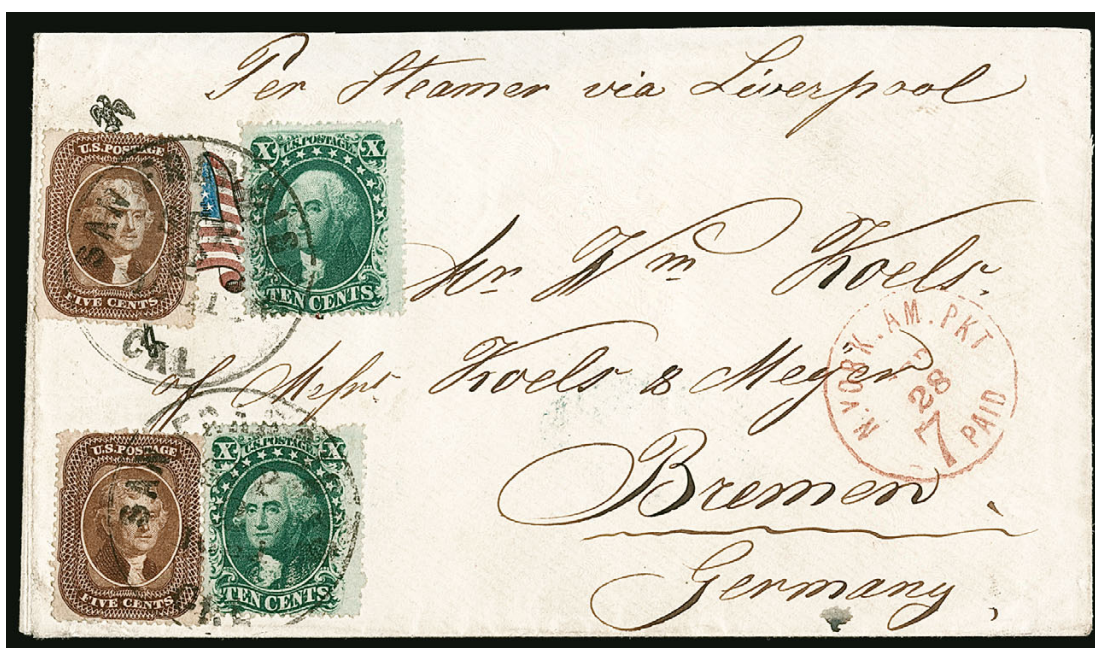 Per Steamer via Liverpool
U.S. POSTAGE
FIVE CENTS
X U.S. POSTAGE X
TEN CENTS
SAN
CAL
Mr Wm Koels.
of Messrs Koels & Meyer
Bremen
Germany,
N. YORK. AM. PKT
28
7
PAID
U.S. POSTAGE
FIVE CENTS
X U.S. POSTAGE X
TEN CENTS
SAN